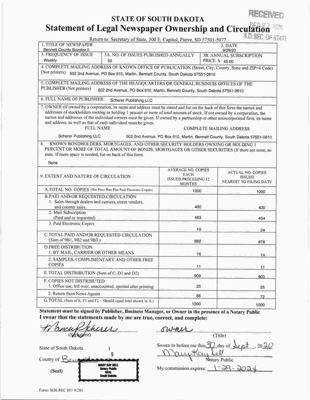 STATE OF SOUTH DAKOTA
Statement of Legal Newspaper Ownership and Circulation
RECEIVED
Return to: Secretary of State, 500 E. Capitol, Pierre, SD 57501-5077
1. TITLE OF NEWSPAPER
Bennett County Booster II
2. DATE
3. FREQUENCY OF ISSUE
Weekly
3A. NO. OF ISSUES PUBLISHED ANNUALLY
3B. ANNUAL SUBSCRIPTION
PRICE $
4. COMPLETE MAILING ADDRESS OF KNOWN OFFICE OF PUBLICATION (Street, City, County, State and ZIP+4 Code)
(Not printers) 502 2nd Avenue, PO Box 610, Martin, Bennett County, South Dakota 57551-0610
5. COMPLETE MAILING ADDRESS OF THE HEADQUARTERS OF GENERAL BUSINESS OFFICES OF THE
PUBLISHER (Not printers) 502 2nd Avenue, PO Box 610, Martin, Bennett County, South Dakota 57551-0610
6. FULL NAME OF PUBLISHER: Scherer Publishing LLC
7. OWNER (If owned by a corporation, its name and address must be stated and also the names and
addresses of stockholders owning or holding 1 percent or more of total amount of stock. If not owned by a corporation, the
names and addresses of the individual owners must be given. If owned by a partnership or other unincorporated firm, its name
and address, as well as that of each individual must be given.
FULL NAME COMPLETE MAILING ADDRESS
Scherer Publishing LLC 502 2nd Avenue, PO Box 610, Martin, Bennett County, South Dakota 57551-0610
8. KNOWN BONDHOLDERS, MORTGAGES, AND OTHER SECURITY HOLDERS OWNING OR HOLDING 1
PERCENT OR MORE OF TOTAL AMOUNT OF BONDS, MORTGAGES OR OTHER SECURITIES (If there are none, so
state. If more space is needed, list on back of this form.
None
9. EXTENT AND NATURE OF CIRCULATION
AVERAGE NO. COPIES
EACH
ISSUED PRECEDING 12
MONTHS
ACTUAL NO. COPIES
ISSUED
NEAREST TO FILING DATE
A. TOTAL NO. COPIES 1000 1000
B. PAID AND/OR REQUESTED CIRCULATION
1. Sales through dealers and carriers, street vendors,
and counter sales. 400 400
2. Mail Subscription
(Paid and or requested)
3. Paid Electronic Copies 19 24
C. TOTAL PAID AND/OR REQUESTED CIRCULATION
(Sum of 9B1, 9B2 and 9B3.)
D. FREE DISTRIBUTION
1. BY MAIL, CARRIER OR OTHER MEANS 16 14
2. SAMPLES, COMPLIMENTARY AND OTHER FREE
COPIES 11 11
E. TOTAL DISTRIBUTION (Sum of C, D1 and D2) 909 903
F. COPIES NOT DISTRIBUTED
1. Office use, left over, unaccounted, spoiled after printing 25 25
2. Return from News Agents 66 72
G. TOTAL (Sum of E, F1 and F2 - Should equal total shown in A.) 1000 1000
Statement must be signed by Publisher, Business Manager, or Owner in the presence of a Notary Public
I swear that the statements made by me are true, correct, and complete:
owner
(Signature) (Title)
State of South Dakota
Sworn to before me this 30 day of Sept, 2020
County of
Notary Public
(Seal)
MARY KAY SELL
Notary Public
SEAL
South Dakota
My commission expires: 1-29-2024